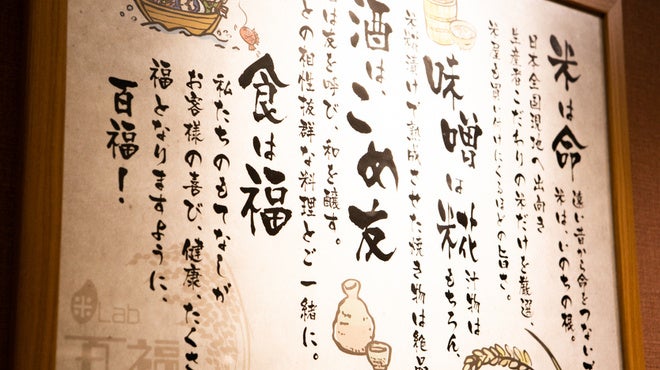 米は命 遠い昔から命をつないで
米は、いのちの根。
日本全国現地へ出向き
生産者こだわりの米だけを厳選、
米屋も買い付けにくるほどの旨さ。
味噌は糀 汁物は
もちろん、
米糀漬けで熟成させた焼き物は絶品
酒は、こめ友
酒は友を呼び、和を醸す。
との相性抜群な料理とご一緒に。
食は福
私たちのもてなしが
お客様の喜び、健康、たくさ
福となりますように、
百福!
米Lab
百福